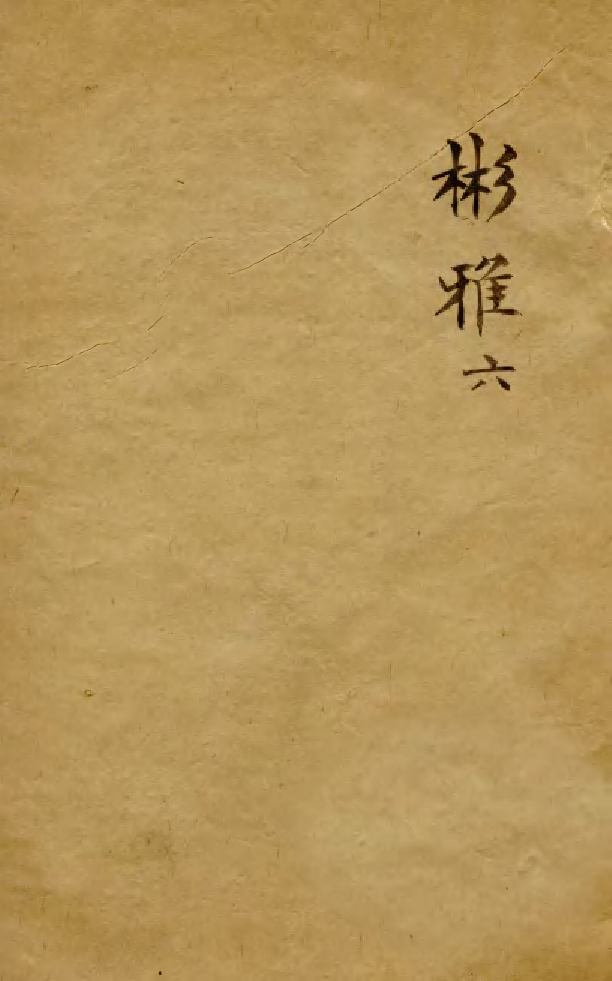 彬雅六